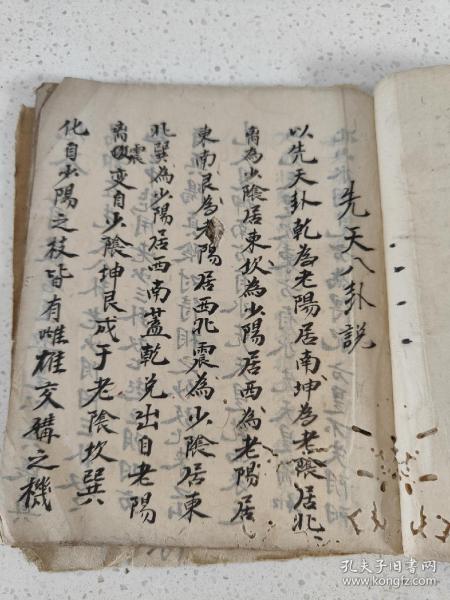 先天八卦説
以先天卦乾為老陽居南坤為老陰居北
离為少陰居東坎為少陽居西為老陽居
東南艮為老陽居西北震為少陰居東
北巽為少陽居西南蓋乾兌出自老陽
离震变自少陰坤艮成于老陰坎巽
化自少陽之枝皆有雌雄交媾之機
孔夫子旧书网
www.kongfz.com